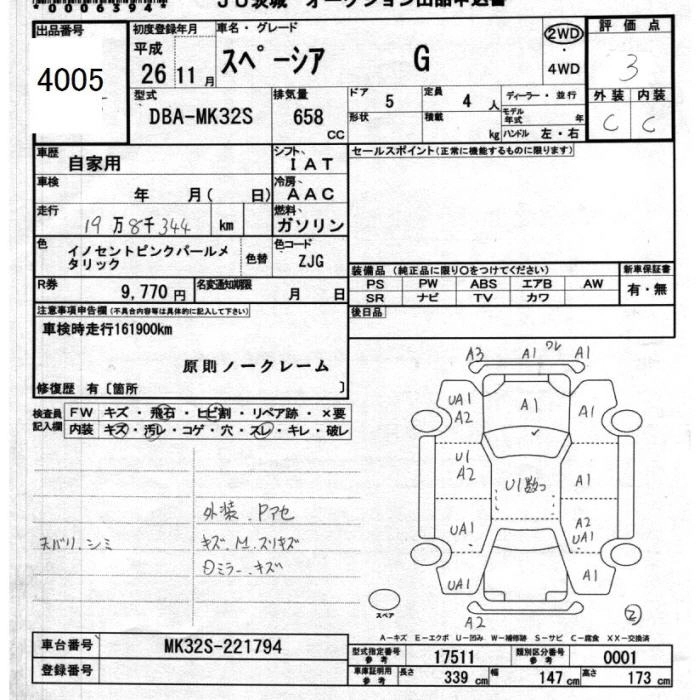 *00063940*
JU茨城 オークション出品申込書
出品番号
4005
初度登録年月
平成
26 11月
車名・グレード
スペーシア G
2WD
4WD
評価点
3
外装 内装
C C
型式
DBA-MK32S
排気量
658
CC
ドア 5
定員 4 人
形状
積載 kg
ディーラー・並行
モデル年式 年
ハンドル 左・右
車歴
自家用
シフト
IAT
セールスポイント(正常に機能するものに限ります)
車検
年 月( 日)
冷房
AAC
走行
19万8千344 km
燃料
ガソリン
色
イノセントピンクパールメ
タリック
色替
色コード
ZJG
装備品(純正品に限り○をつけてください)
新車保証書
PS PW ABS エアB AW
有・無
SR ナビ TV カワ
R券
9,770円
名変通知期限
月 日
後日品
注意事項申告欄(不具合内容等は具体的に記入して下さい)
車検時走行161900km
原則ノークレーム
修復歴 有〔箇所 〕
検査員
記入欄
FW キズ・飛石・ヒビ割・リペア跡・×要
内装 キズ・汚レ・コゲ・穴・スレ・キレ・破レ
外装.Pアセ
天バリ.シミ
キズ.M.スリキズ
ミラー.キズ
A3 A1 ワレ A1
UA1
A2
A1
A1
U1
A2
U1数つ
A1
UA1
A2
UA1
UA1
A1
A2
スペア
2
A-キズ E-エクボ U-凹み W-補修跡 S-サビ C-腐食 XX-交換済
車台番号
MK32S-221794
登録番号
型式指定番号
参考
17511
類別区分番号
参考
0001
車庫証明用
参考
長さ 339 cm
幅 147 cm
高さ 173 cm